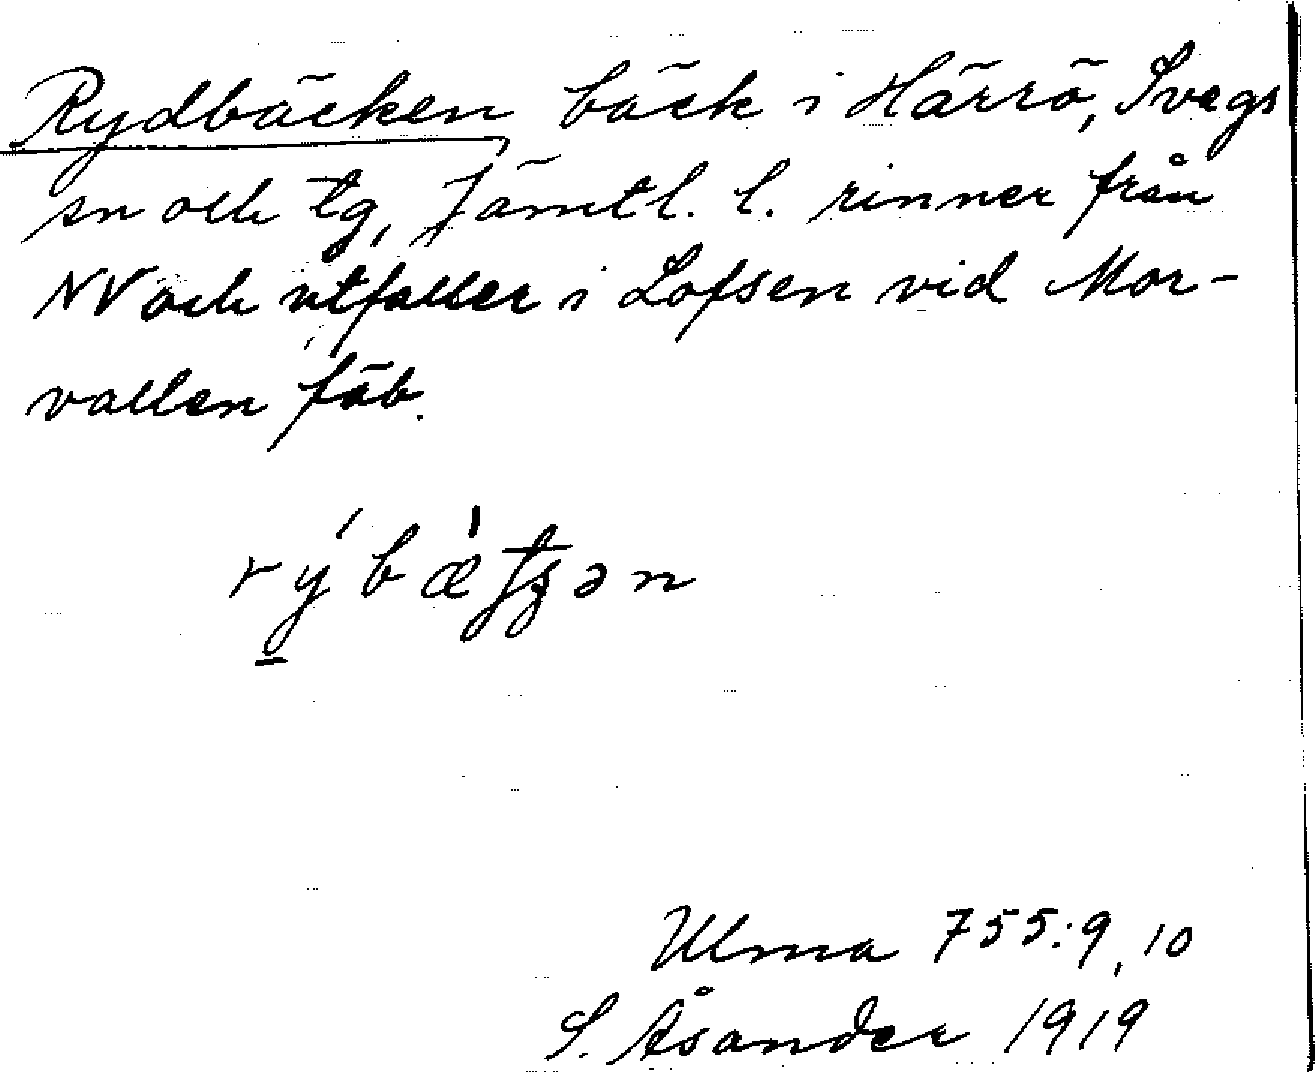 Rydbäcken, bäck i Härrö, Svegs
sn och tg, Jämtl. l. rinner från
NV och utfaller i Lofsen vid Mor-
vallen fäb.
Ulma 755:9, 10
S. Åsander 1919